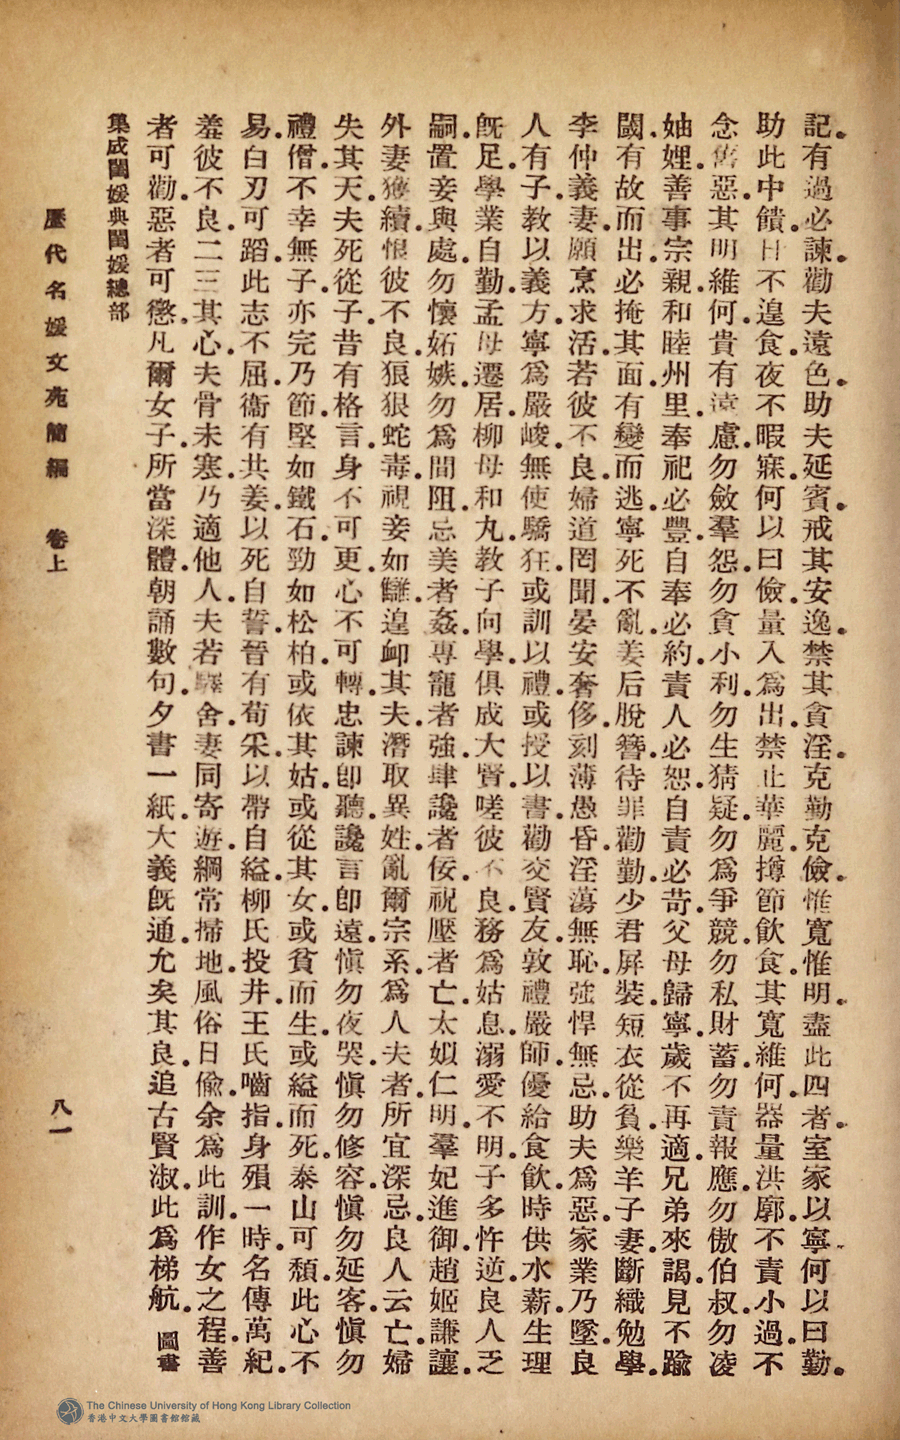 記。有過必諫。勸夫遠色。助夫延賓。戒其安逸。禁其貪淫。克勤克儉。惟寬惟明。盡此四者。室家以寧。何以曰勤。
助此中饋。日不遑食。夜不暇寐。何以曰儉。量入爲出。禁止華麗。撙節飲食。其寬維何。器量洪廓。不責小過。不
念舊惡。其明維何。貴有遠慮。勿斂羣怨。勿貪小利。勿生猜疑。勿爲爭競。勿私財蓄。勿責報應。勿傲伯叔。勿凌
妯娌。善事宗親。和睦州里。奉祀必豐。自奉必約。責人必恕。自責必苛。父母歸寧。歲不再適。兄弟來謁。見不踰
閾。有故而出。必掩其面。有變而逃。寧死不亂。姜后脫簪。待罪勸勤。少君屏裝。短衣從貧。樂羊子妻。斷織勉學。
李仲義妻。願烹求活。若彼不良。婦道罔聞。晏安奢侈。刻薄愚昏。淫蕩無恥。強悍無忌。助夫爲惡。家業乃墜。良
人有子。教以義方。寧爲嚴峻。無使驕狂。或訓以禮。或授以書。勸交賢友。敦禮嚴師。優給食飲。時供水薪。生理
既足。學業自勤。孟母遷居。柳母和丸。教子向學。俱成大賢。嗟彼不良。務爲姑息。溺愛不明。子多忤逆。良人乏
嗣。置妾與處。勿懷妬嫉。勿爲間阻。忌美者姦。專寵者強。肆讒者佞。祝壓者亡。太姒仁明。羣妃進御。趙姬謙讓。
外妻獲續。恨彼不良。狠狠蛇毒。視妾如讎。遑卹其夫。潛取異姓。亂爾宗系。爲人夫者。所宜深忌。良人云亡。婦
失其天。夫死從子。昔有格言。身不可更。心不可轉。忠諫卽聽。讒言卽遠。愼勿夜哭。愼勿修容。愼勿延客。愼勿
禮僧。不幸無子。亦完乃節。堅如鐵石。勁如松柏。或依其姑。或從其女。或貧而生。或縊而死。泰山可頹。此心不
易。白刃可蹈。此志不屈。衞有共姜。以死自誓。晉有荀采。以帶自縊。柳氏投井。王氏嚙指。身殞一時。名傳萬紀。
羞彼不良。二三其心。夫骨未寒。乃適他人。夫若驛舍。妻同寄遊。綱常掃地。風俗日偸。余爲此訓。作女之程。善
者可勸。惡者可懲。凡爾女子。所當深體。朝誦數句。夕書一紙。大義既通。允矣其良。追古賢淑。此爲梯航。 圖書
集成閨媛典閨媛總部
歷代名媛文苑簡編 卷上 八一
The Chinese University of Hong Kong Library Collection
香港中文大學圖書館館藏